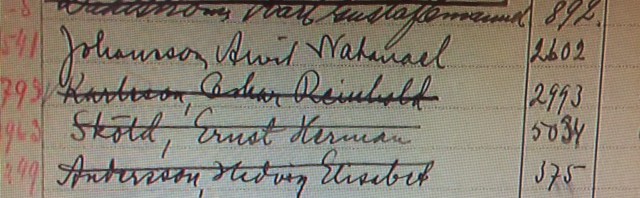 Karl Gustaf 892.
541 Johansson, Arvid Natanael 2602
793 Karlsson, Oskar Reinhold 2993
963 Sköld, Ernst Herman 5034
Andersson, Hedvig Elisabet 375